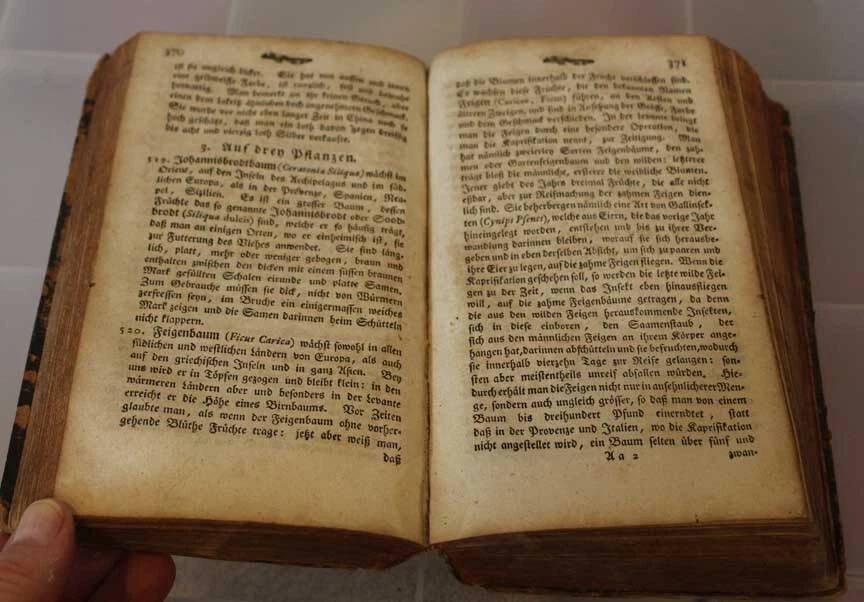 370
ist sie ungleich dicker. Sie hat von aussen und innen
eine gelbweisse Farbe, ist runzlich, süß und beynahe
herzartig. Man bemerkt an ihr keinen Geruch, aber
einen dem Lakriz ähnlichen doch angenehmern Geschmack.
Sie wurde vor nicht eben langer Zeit in China noch so
hoch geschätzt, daß man ein loth davon gegen dreißig
bis acht und vierzig loth Silber verkaufte.
3. Auf drey Pflanzen.
519. Johannisbrodtbaum (Ceratonia Siliqua) wächst im
Orient, auf den Inseln des Archipelagus und im süd-
lichen Europa, als in der Provenze, Spanien, Nea-
pel, Sizilien. Es ist ein grosser Baum, dessen
Früchte das so genannte Johannisbrodt oder Sood-
brodt (Siliqua dulcis) sind, welche er so häufig trägt,
daß man an einigen Orten, wo er einheimisch ist, sie
zur Futterung des Viehes anwendet. Sie sind läng-
lich, platt, mehr oder weniger gebogen, braun und
enthalten zwischen den dicken mit einem süssen braunen
Mark gefüllten Schalen eirunde und platte Samen.
Zum Gebrauche müssen sie dick, nicht von Würmern
zerfressen seyn, im Bruche ein einigermassen weiches
Mark zeigen und die Samen darinnen beim Schütteln
nicht klappern.
520. Feigenbaum (Ficus Carica) wächst sowohl in allen
südlichen und westlichen Ländern von Europa, als auch
auf den griechischen Inseln und in ganz Asien. Bey
uns wird er in Töpfen gezogen und bleibt klein: in den
wärmeren Ländern aber und besonders in der Levante
erreicht er die Höhe eines Birnbaums. Vor Zeiten
glaubte man, als wenn der Feigenbaum ohne vorher-
gehende Blüthe Früchte trage: jetzt aber weiß man,
daß
371
daß die Blumen innerhalb der Frucht verschlossen sind.
Es wachsen diese Früchte, die den bekannten Namen
Feigen (Caricae, Ficus) führen, an den Aesten und
ältern Zweigen, und sind in Ansehung der Größe, Farbe
und dem Geschmack verschieden. In der Levante bringt
man die Feigen durch eine besondere Operation, die
man die Kaprifikation nennt, zur Zeitigung. Man
hat nämlich zweierley Sorten Feigenbäume, den zah-
men oder Gartenfeigenbaum und den wilden: letzterer
trägt bloß die männliche, ersterer die weibliche Blumen.
Jener giebt des Jahrs dreimal Früchte, die alle nicht
eßbar, aber zur Reifmachung der zahmen Feigen dien-
lich sind. Sie beherbergen nämlich eine Art von Gallinsek-
ten (Cynips Psenes), welche aus Eiern, die das vorige Jahr
hineingelegt worden, entstehen und bis zu ihrer Ver-
wandlung darinnen bleiben, worauf sie sich herausbe-
geben und in eben derselben Absicht, um sich zu paaren und
ihre Eier zu legen, auf die zahme Feigen fliegen. Wenn die
Kaprifikation geschehen soll, so werden die letzte wilde Fei-
gen zu der Zeit, wenn das Insekt eben hinausfliegen
will, auf die zahme Feigenbäume getragen, da denn
die aus den wilden Feigen herauskommende Insekten,
sich in diese einboren, den Saamenstaub, der
sich aus den männlichen Feigen an ihrem Körper ange-
hangen hat, darinnen abschütteln und sie befeuchten, wodurch
sie innerhalb vierzehn Tage zur Reife gelangen: son-
sten aber meistentheils unreif abfallen würden. Hie-
durch erhält man die Feigen nicht nur in ansehnlicherer Men-
ge, sondern auch ungleich grösser, so daß man von einem
Baum bis dreihundert Pfund einerndtet, statt
daß in der Provenze und Italien, wo die Kaprifikation
nicht angestellet wird, ein Baum selten über fünf und
Aa 2 zwan-